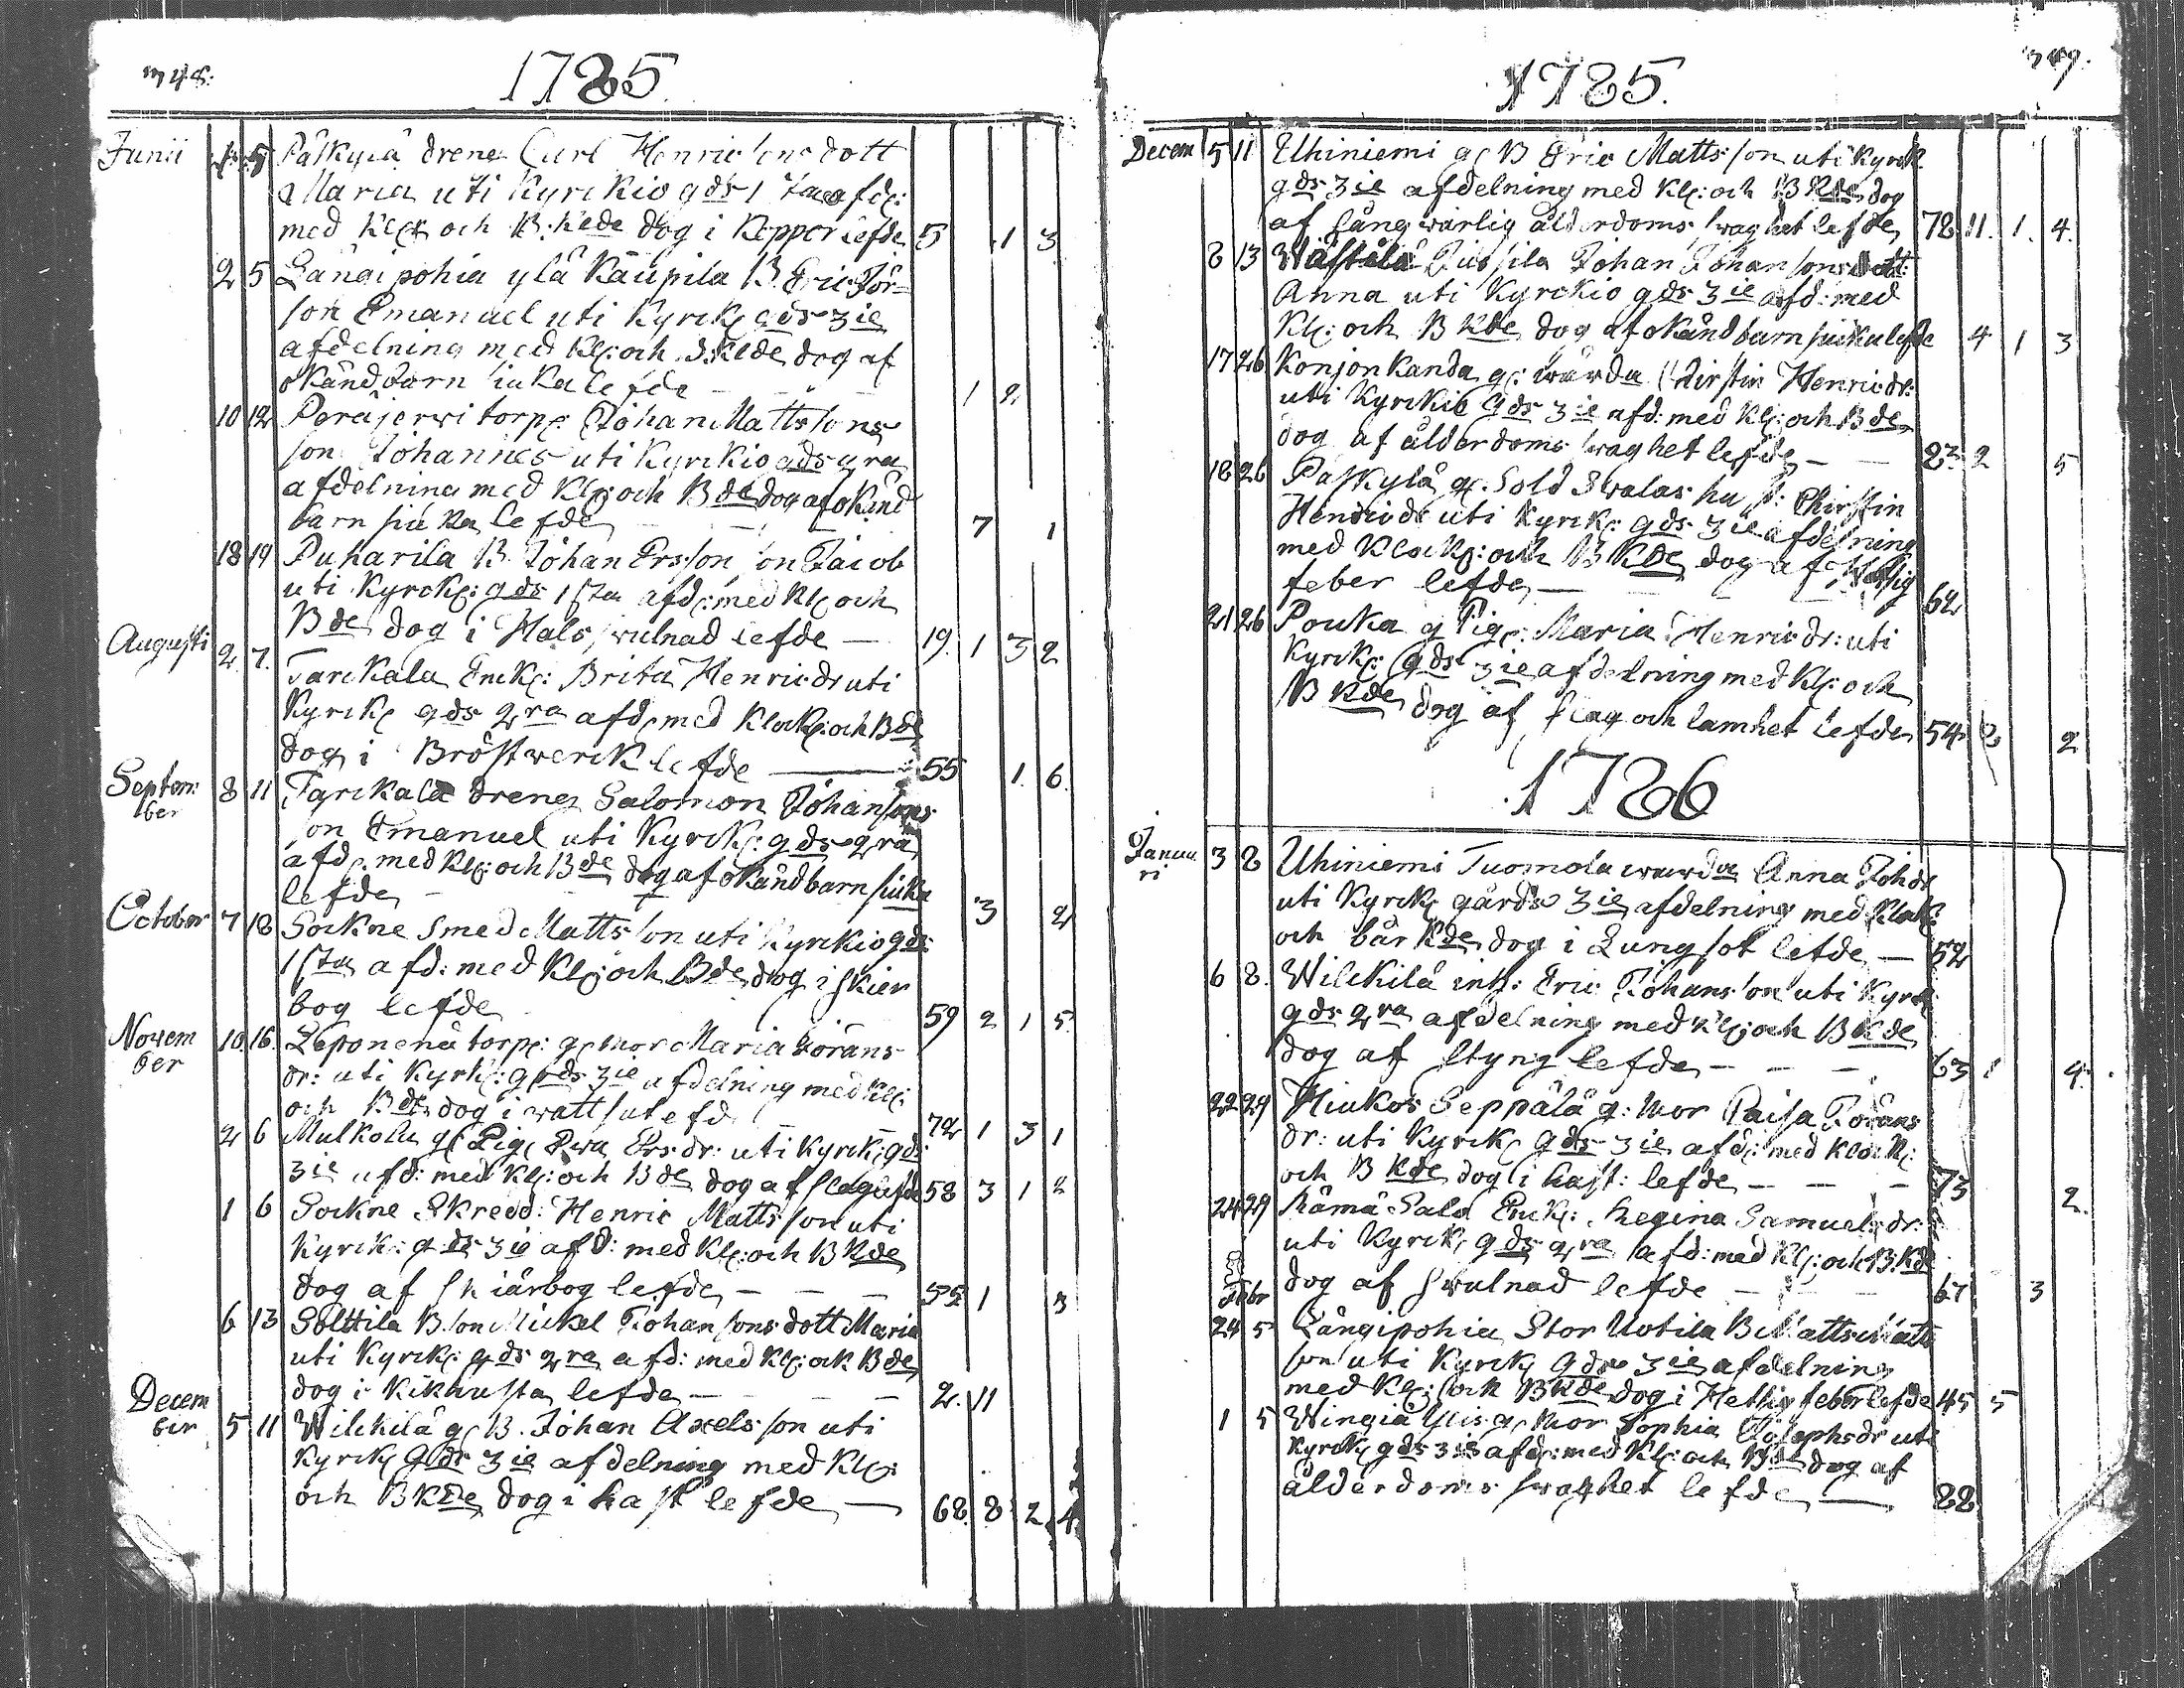 1785.
Junii 5 Påskylä dreng Carl Henricsons dott
Maria uti Kyrckio gds 1 sta afd:
med Kl: och B: Kde dog i Koppor lefde 5 1 3
2 5 Längipohia ylä Kaupila B Eric Jör=
son Emanuel uti Kyrck gds 3 ie
afdelning med Kl: och B: Kde dog af
okänd barn siuka lefde 1 2
10 12 Peräjerwi torp: Johan Mattssons
son Johannes uti Kyrckio gds 2 ra
afdelning med Kl: och B de dog af okänd
barn siuka lefde 7 1
18 19 Puharila B. Johan Ersson son Jacob
uti Kyrck: gds 1 sta afd: med Kl: och
B de dog i Hals swulnad lefde 19. 1 3 2
Augusti 2. 7. Tarckala Enck: Brita Henricdr uti
Kyrck gds 2 ra afd: med Klock: och B de
dog i Bröstwerck lefde 55 1. 6.
Septem 8 11 Tarckala dreng Salomon Johansons
ber son Emanuel uti Kyrck: gds 2 ra
afd: med Kl: och B de dog af okänd barn siuka
lefde 3 2
October 7 18 Sockne Smed Mattsson uti Kyrckio gds
1 sta afd: med Kl: och B de dog i skier
bog lefde 59 2 1 5.
Novem 10. 16. Leponenä torp: g: mor Maria Jörans
ber dr: uti Kyrk: gds 3 ie afdelning med Kl:
och B de dog i watt sut lefd 72 1 3 1
2 6 Mulkola g: Pig: Ewa Ersdr: uti Kyrck: gds
3 ie afd: med Kl: och B de dog af slag lefde 58 3 1 2
1 6 Sockne Skredd: Henric Mattsson uti
Kyrck: gds 3 ie afd: med Kl: och B Kde
dog af skiärbog lefde 55 1 3
6 13 Solttila B. son Mickel Johansons dott Maria
uti Kyrck: gds 2 ra afd: med Kl: och B de
dog i Kikhusta lefde 2. 11
Decem 5 11 Wilckilä g: B. Johan Axelsson uti
ber Kyrck gds 3 ie afdelning med Kl:
och B Kde dog i hast lefde 68. 8 2 4
1785.
Decem 5 11 Uhiniemi g: B Eric Mattsson uti Kyrck
gds 3 ie afdelning med Kl: och B Kde dog
af långwarlig ålderdoms swaghet lefde 78 11. 1. 4.
8 13 Wästilä Jussila Johan Johansons dott:
Anna uti Kyrckio gds 3 ie afd: med
Kl: och B Kde dog af okänd barn siuka lefde 4 1 3
17 26 Konjonkanda g: wärda Chirstin Henricdr:
uti Kyrckio gds 3 ie afd: med Kl: och B de
dog af ålderdoms swaghet lefde 83 2 5
18 26 Paskylä g: Sold Swalas hust: Chirstin
Henricdr uti Kyrck: gds 3 ie afdelning
med Klock: och B Kde dog af Hettsig
feber lefde 62
21 26 Pouka g Pig: Maria Henricdr: uti
Kyrck: gds 3 ie afdelning med Kl: och
B Kde dog af slag och lamhet lefde 54 2 2
1786
Janua 3 8 Uhiniemi Tuomola wärda Anna Johdr
ri uti Kyrck gårds 3 ie afdelning med Klock:
och bår Kde dog i Lungsot lefde 52
6 8. Wilckilä inh: Eric Johansson uti Kyrck
gds 2 ra afdelning med Kl: och B Kde
dog af styng lefde 63 1 4.
22 29 Hiukos Seppälä g: mor Caisa Jörans
dr: uti Kyrck gds 3 ie afd: med Klock:
och B Kde dog i hast: lefde 73 2.
24 29 Rämä-Sala Enck: Regina Samuelsdr:
uti Kyrck gds 2 ra afd: med Kl: och B. Kde
dog af swulnad lefde 67 3
Febr
24 5 Långipohia Stor Uotila B Matts Matts
son uti Kyrck gds 3 ie afdelning
med Kl: och B Kde dog i Hettsig feber lefde 45 5
1 5 Wingiä Ylis g: mor Sophia Josephsdr uti
Kyrck gds 3 ie afd: med Kl: och B de dog af
ålderdoms swaghet lefde 88